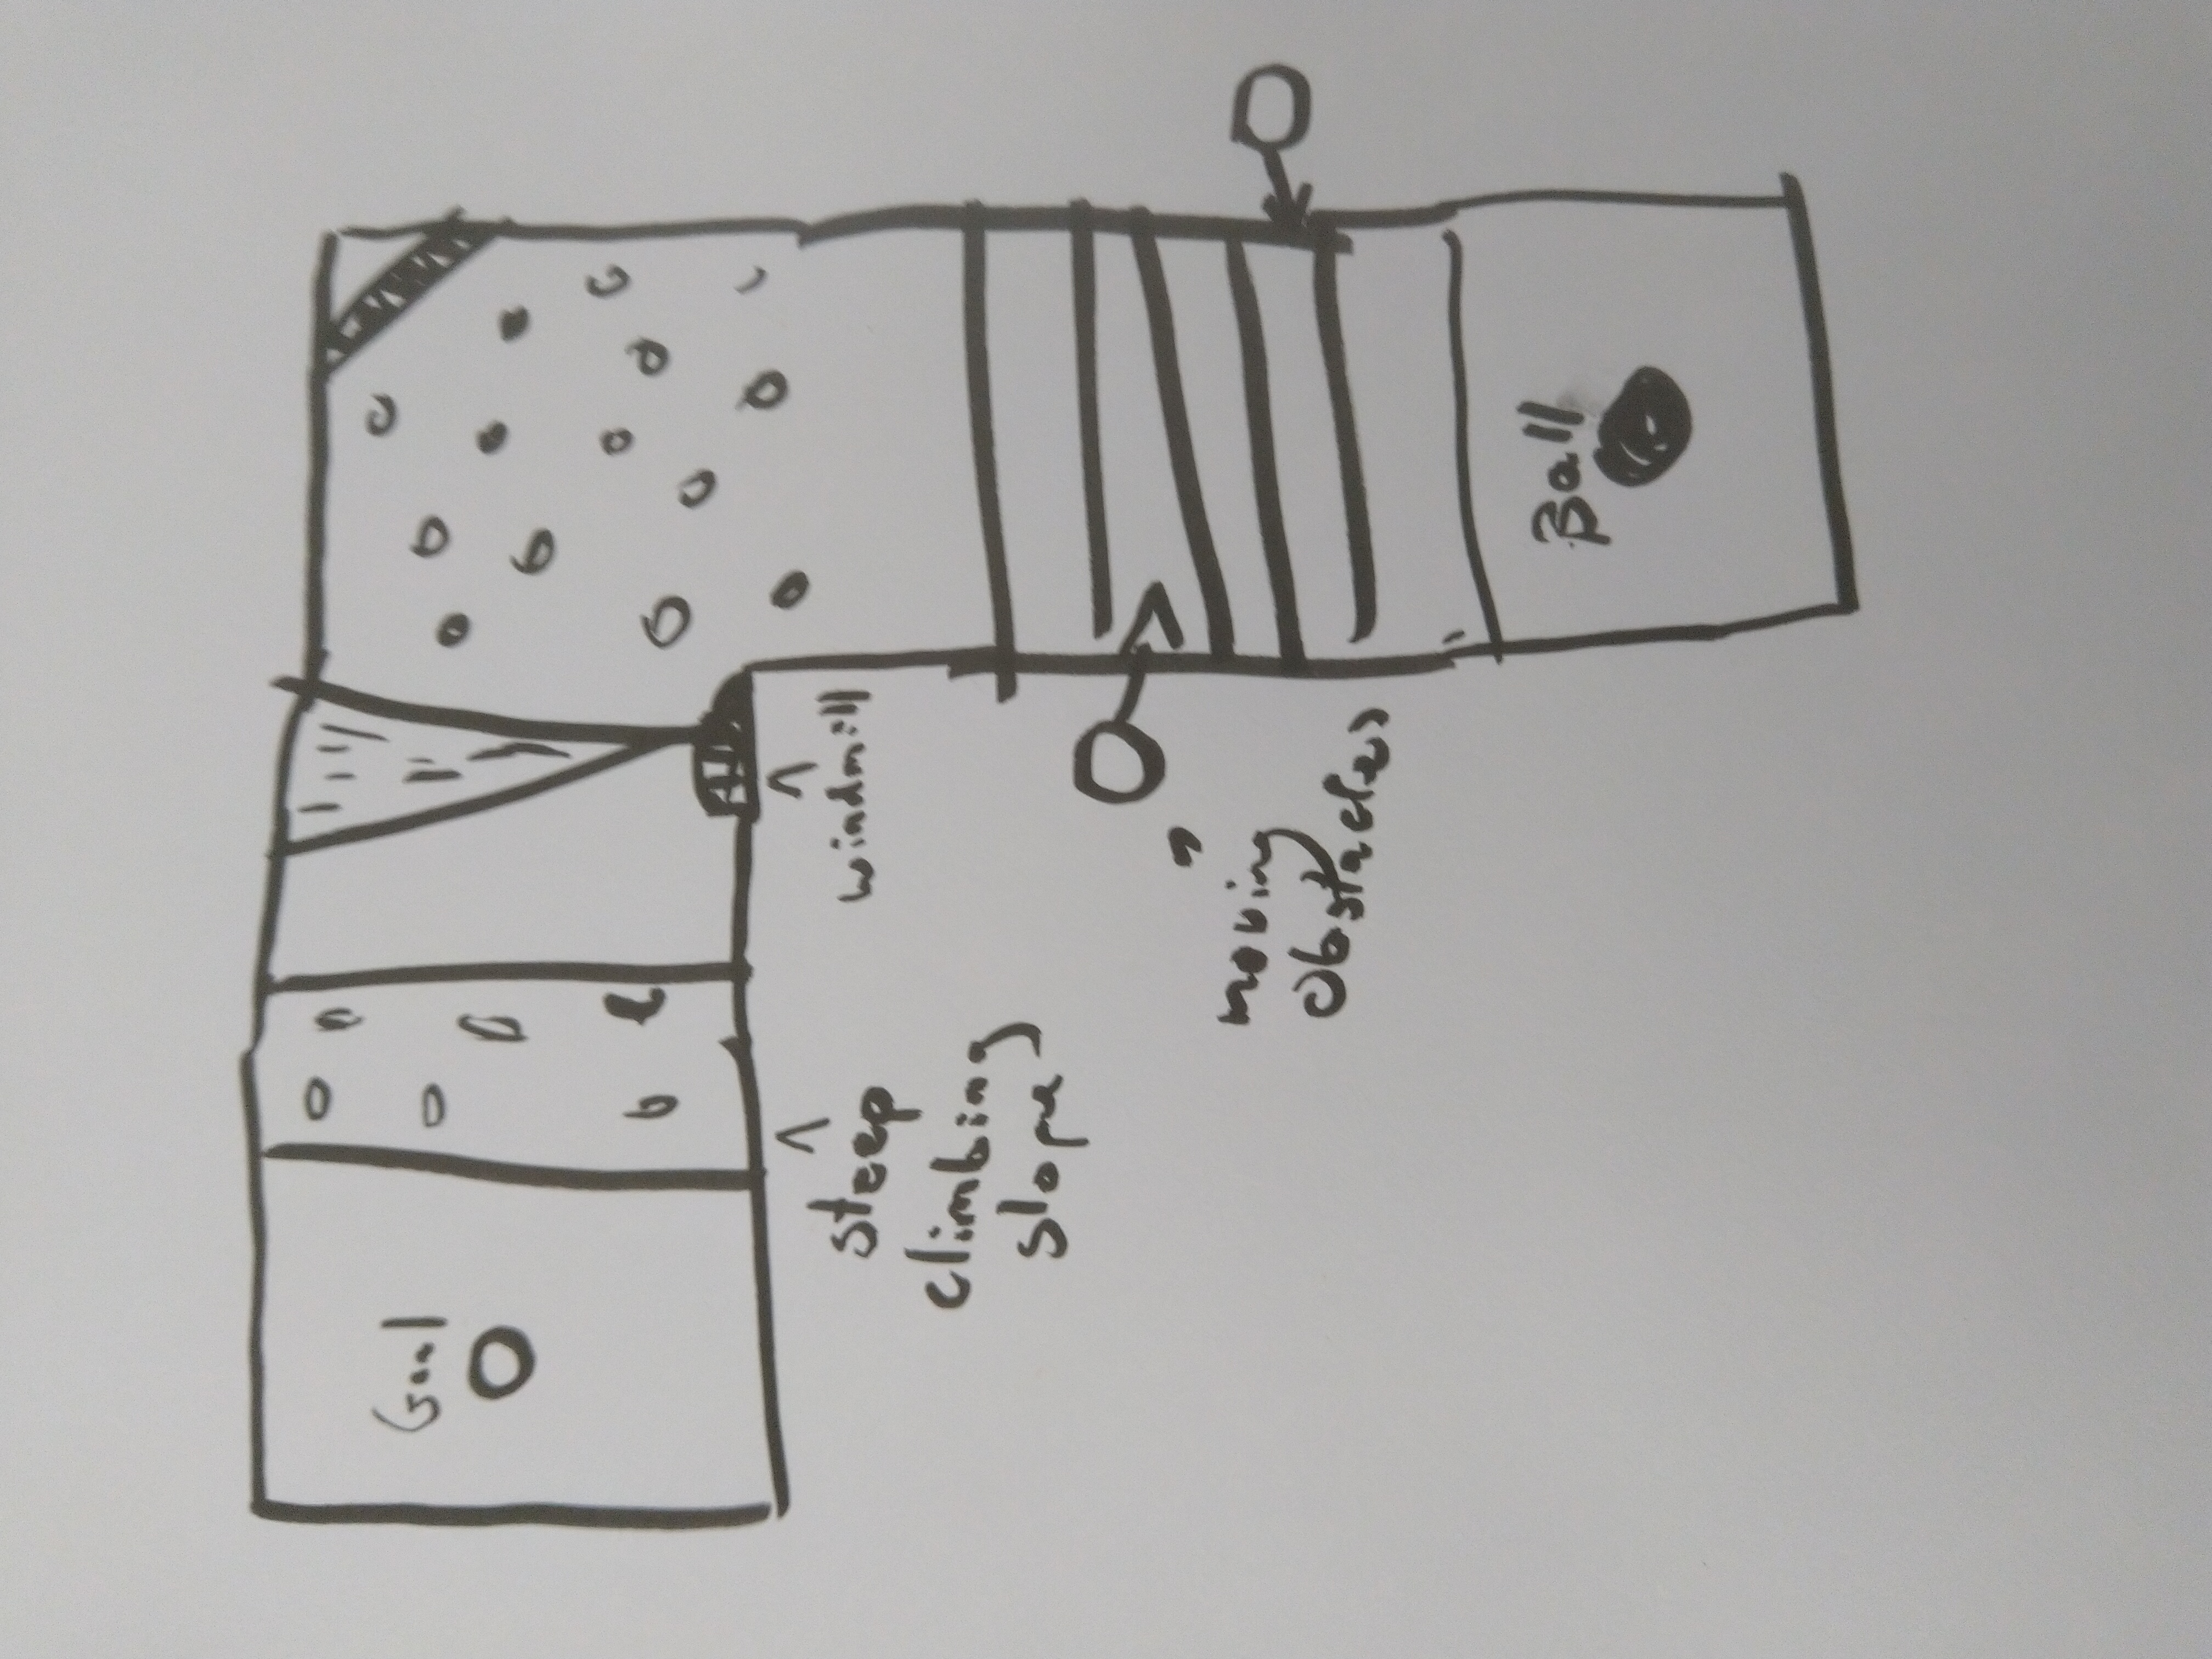 Goal
steep
climbing
slope
windmill
moving
Obstacles
Ball